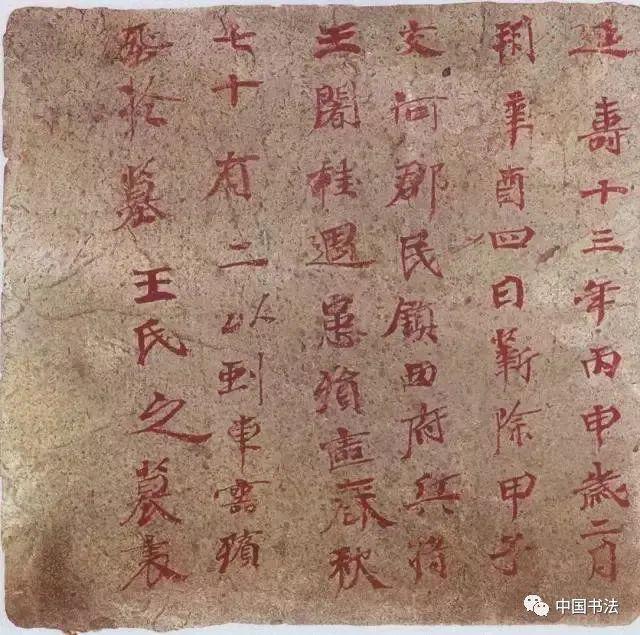 延壽十三年丙申歲二月
朔辛酉四日新除甲子
交河郡民鎮西府兵將
王闍桂遇患殞喪春秋
七十有二以車靈殯
於墓王氏之墓表
中国书法